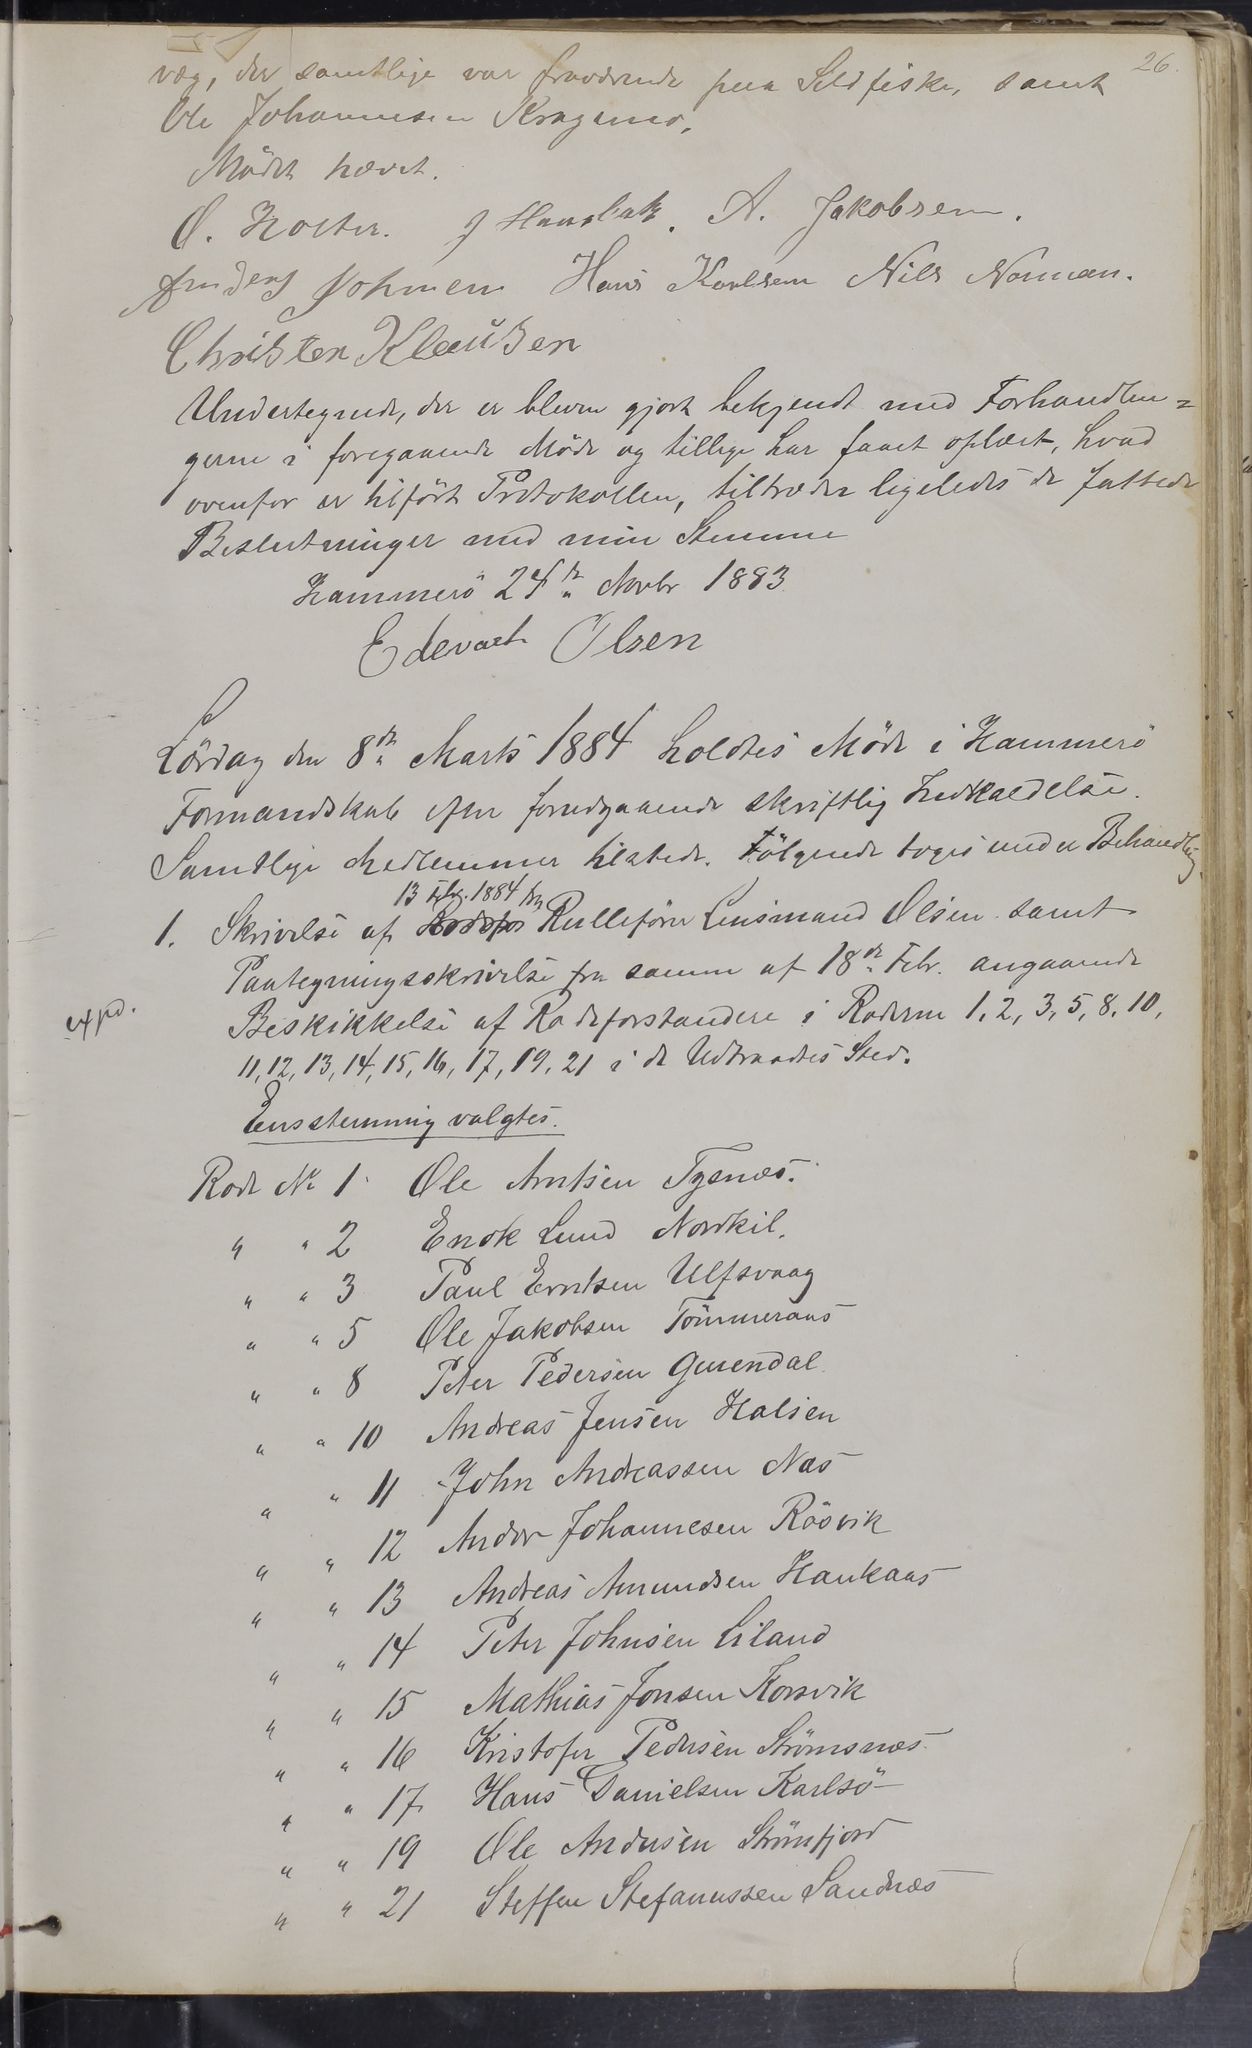 26.
væg, der samtlige var fraværende paa Sildfiske, samt
Ole Johannesen Kragemo.
Mödet hævet.
O. Holter. J Haugbak. A. Jakobsen.
Anders Johnsen Hans Karlsen Nils Norman.
Christen Klausen
Undertegnede, der er bleven gjort bekjendt med Forhandlin=
gerne i foregaaende Möde og tillige har faaet oplæst, hvad
ovenfor er tilfört Protokollen, tiltræder ligeledes de fattede
Beslutninger med min Stemme
Hammerö 24de Novbr 1883
Edevart Olsen
Lördag den 8de Marts 1884 holdtes Möde i Hammerö
Formandskab efter forudgaaende skriftlig Indkaldelse.
Samtlige Medlemmer tilstede. Fölgende toges under Behandlig
13 Febr. 1884 fra
1. Skrivelse af Rulleförer Lensmand Olsen samt
Paategningsskrivelse fra samme af 18de Febr. angaaende
expd.
Beskikkelse af Rodeforstandere i Roderne 1, 2, 3, 5, 8, 10,
11, 12, 13, 14, 15, 16, 17, 19, 21 i de Udtraadtes Sted.
Eensstemmig valgtes.
Rode No 1 Ole Arntsen Tysnæs.
" " 2 Enok Lund Nordkil.
" " 3 Paul Erntsen Ulfsvaag
" " 5 Ole Jakobsen Tömmeraas
" " 8 Peter Pedersen
" " 10 Andreas Jensen Halsen
" " 11 John Andreassen Næs
" " 12 Andor Johannesen Rösvik
" " 13 Andreas Amundsen Haukaas
" " 14 Peter Johnsen Liland
" " 15 Mathias Jonsen Korsvik
" " 16 Kristofer Pedersen Strömsnæs
" " 17 Hans Danielsen Karlsö
" " 19 Ole Andersen Strömfjord
" " 21 Steffen Stefanussen Sandnæs